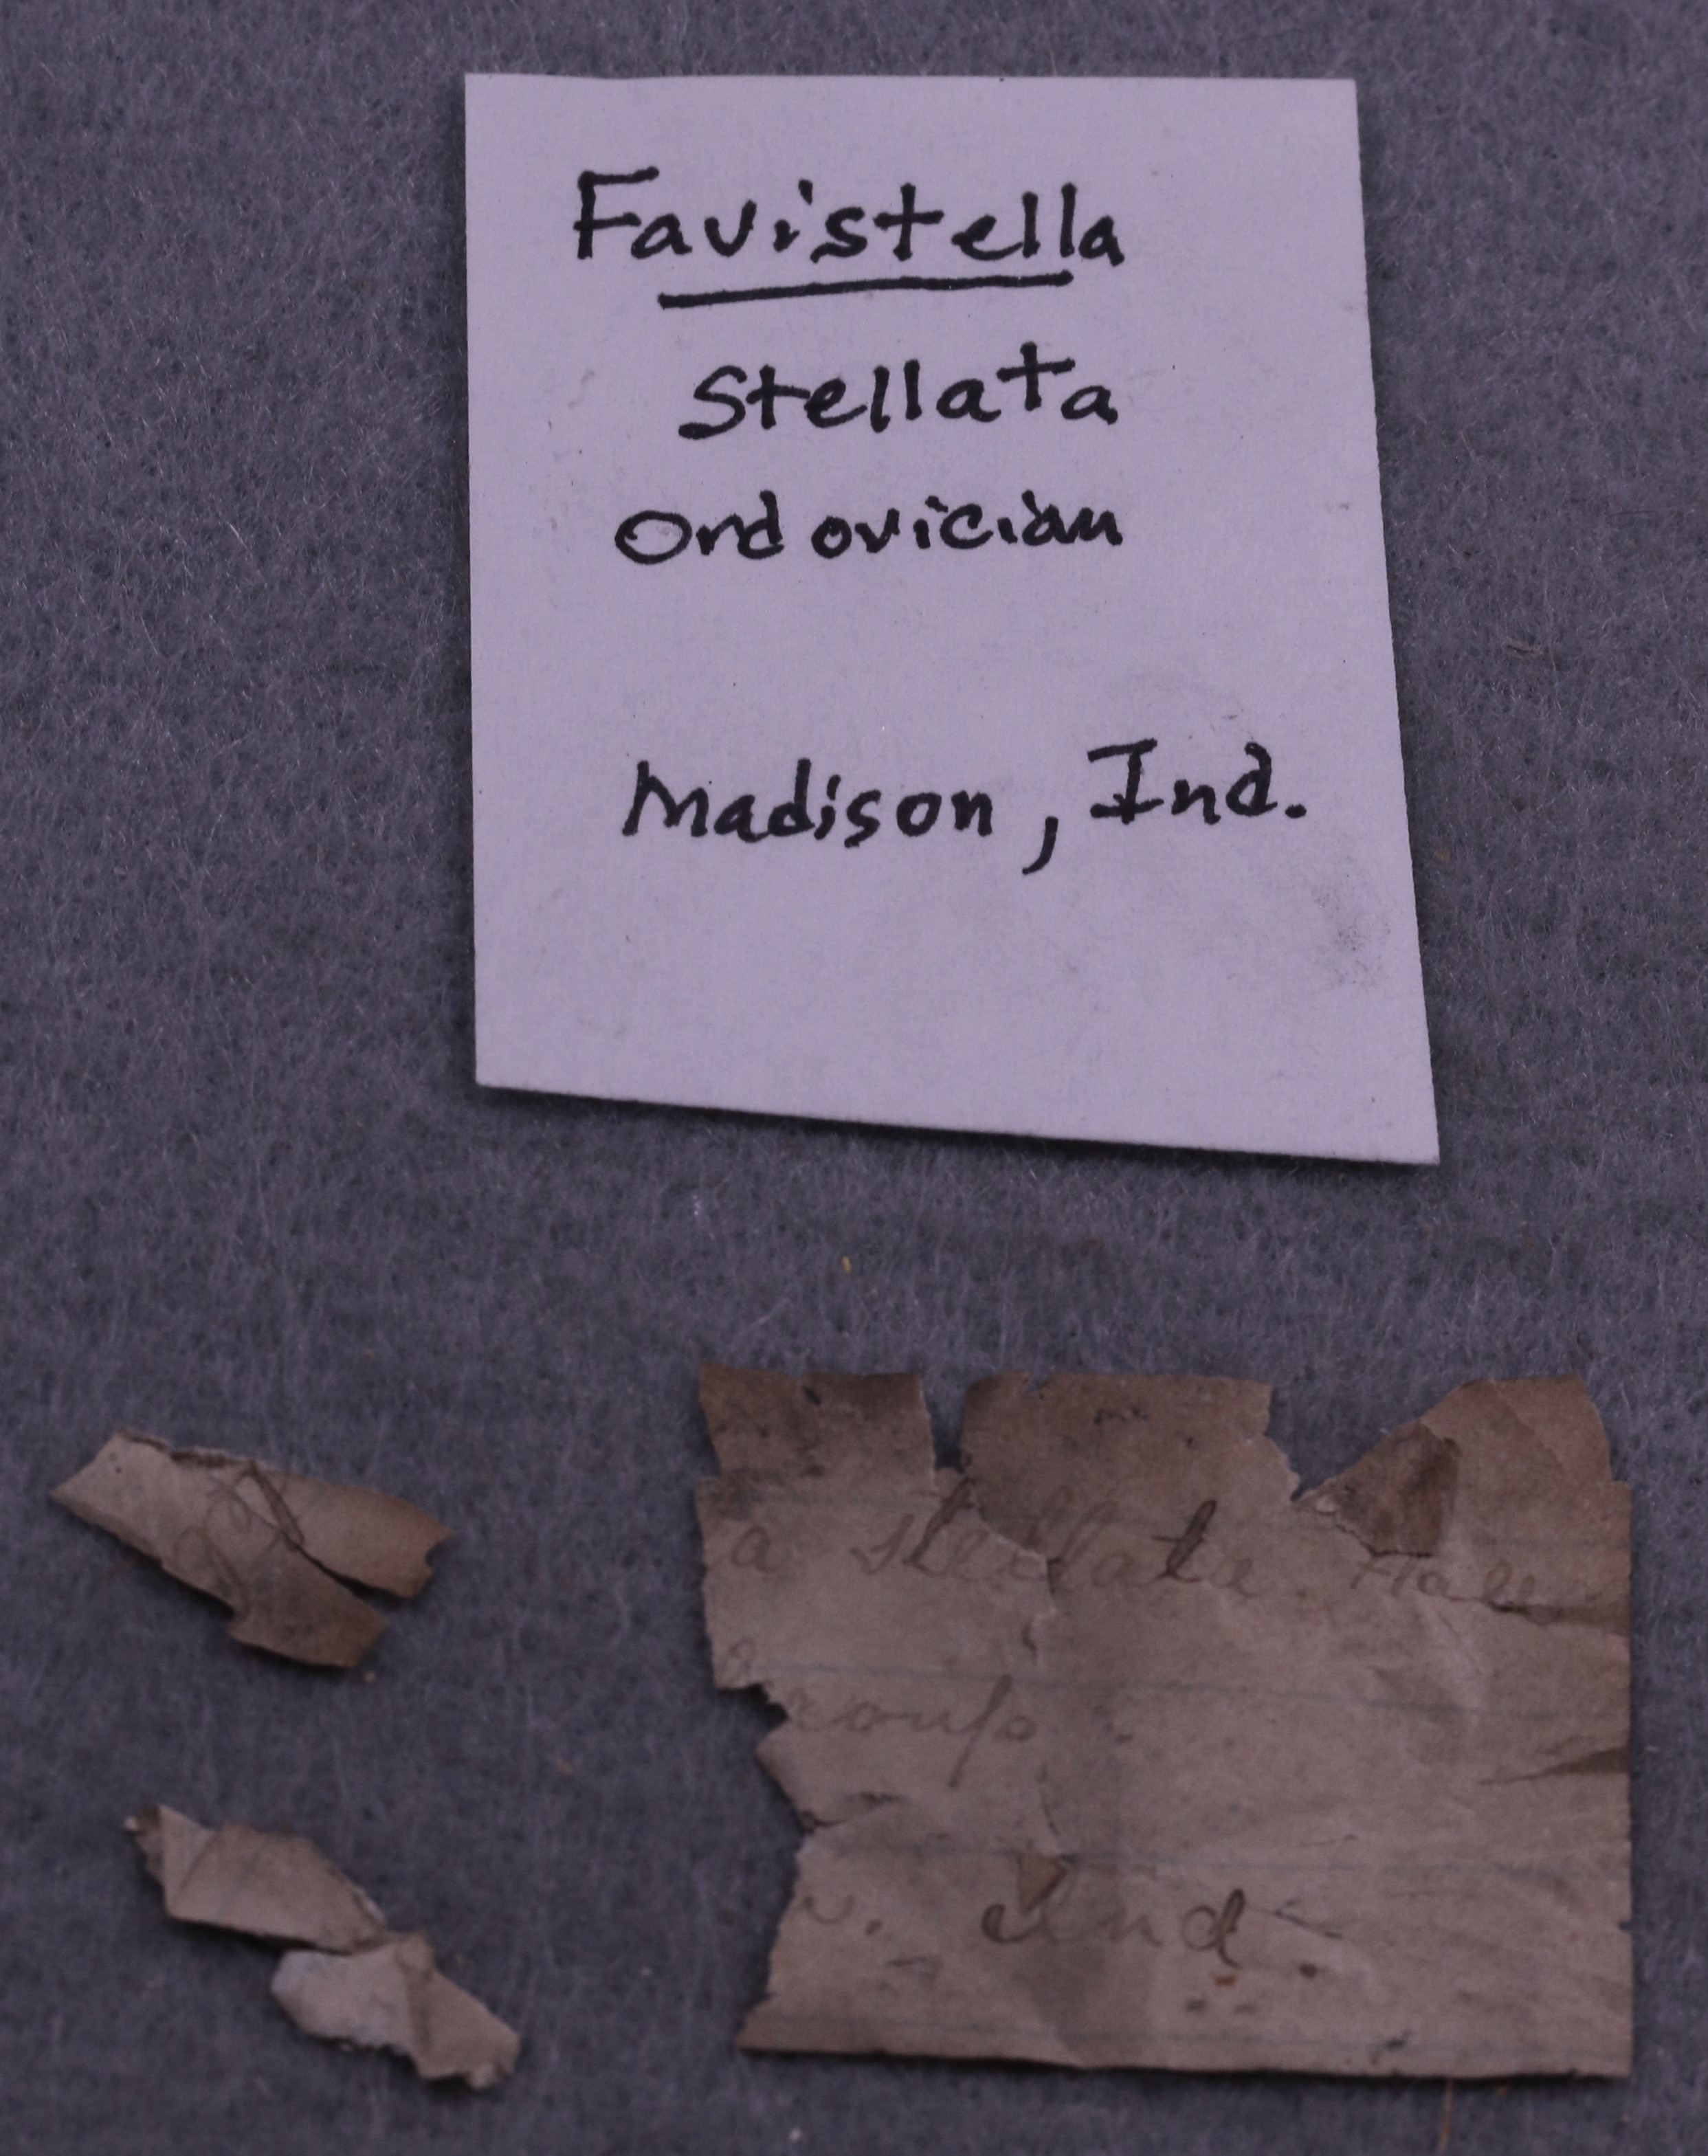 Favistella
Stellata
Ordovician
Madison, Ind.
a stellata Hall
roup
Ind.